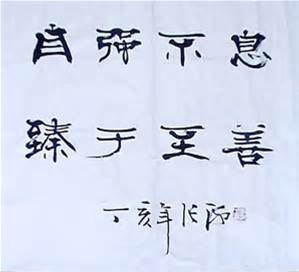 自强不息
臻于至善
丁亥年